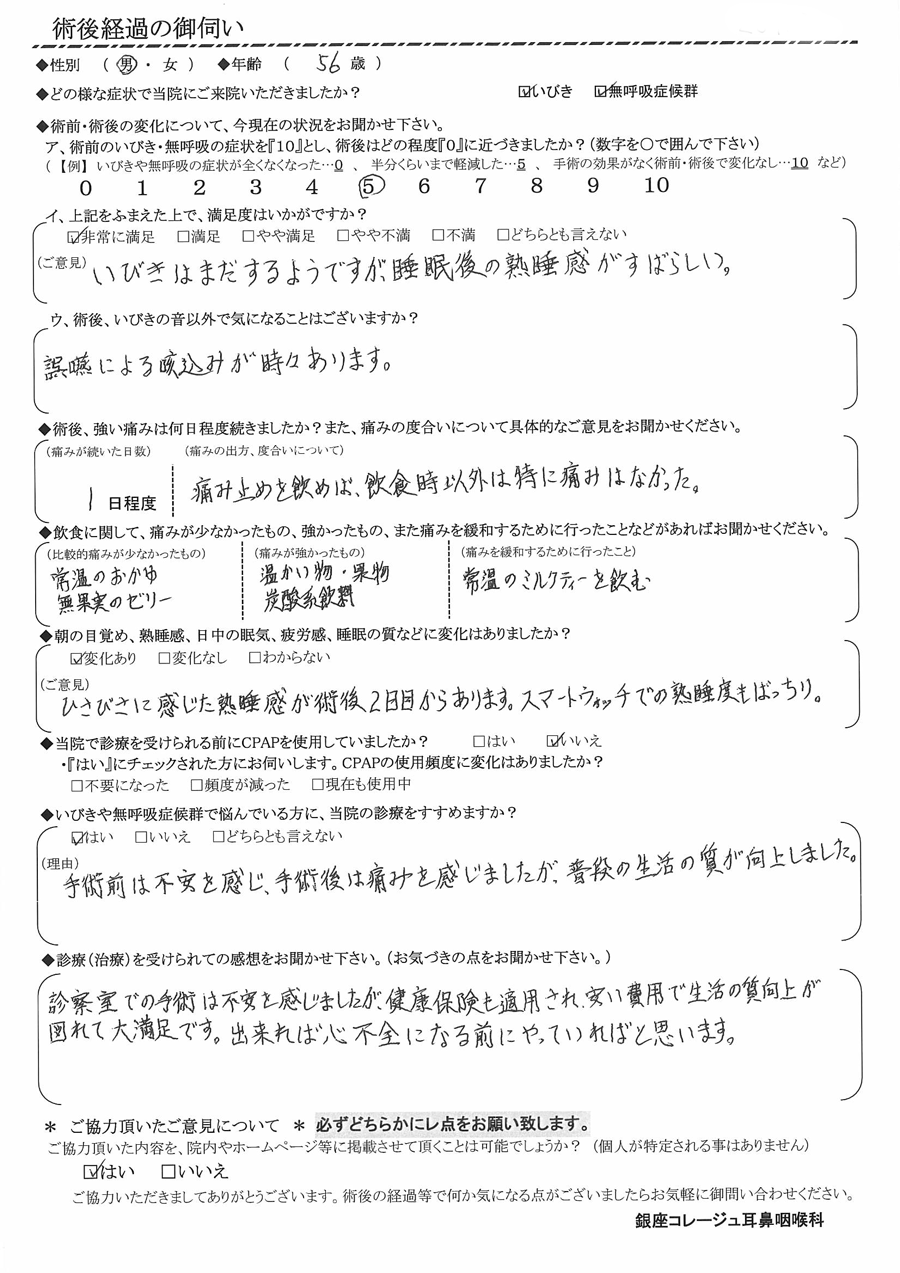 術後経過の御伺い
◆性別 (男・女) ◆年齢 ( 56 歳 )
◆どの様な症状で当院にご来院いただきましたか? ☑いびき ☑無呼吸症候群
◆術前・術後の変化について、今現在の状況をお聞かせ下さい。
ア、術前のいびき・無呼吸の症状を『10』とし、術後はどの程度『0』に近づきましたか?(数字を〇で囲んで下さい)
(【例】 いびきや無呼吸の症状が全くなくなった…0 、 半分くらいまで軽減した…5 、 手術の効果がなく術前・術後で変化なし…10 など)
0 1 2 3 4 5 6 7 8 9 10
イ、上記をふまえた上で、満足度はいかがですか?
☑非常に満足 □満足 □やや満足 □やや不満 □不満 □どちらとも言えない
(ご意見) いびきはまだするようですが、睡眠後の熟睡感がすばらしい。
ウ、術後、いびきの音以外で気になることはございますか?
誤嚥による咳込みが時々あります。
◆術後、強い痛みは何日程度続きましたか?また、痛みの度合いについて具体的なご意見をお聞かせください。
(痛みが続いた日数) (痛みの出方、度合いについて)
1 日程度 痛み止めを飲めば、飲食時以外は特に痛みはなかった。
◆飲食に関して、痛みが少なかったもの、強かったもの、また痛みを緩和するために行ったことなどがあればお聞かせください。
(比較的痛みが少なかったもの) (痛みが強かったもの) (痛みを緩和するために行ったこと)
常温のおかゆ 温かい物・果物 常温のミルクティーを飲む
無果実のゼリー 炭酸系飲料
◆朝の目覚め、熟睡感、日中の眠気、疲労感、睡眠の質などに変化はありましたか?
☑変化あり □変化なし □わからない
(ご意見)
ひさびさに感じた熟睡感が術後2日目からあります。スマートウォッチでの熟睡度もばっちり。
◆当院で診療を受けられる前にCPAPを使用していましたか? □はい ☑いいえ
・『はい』にチェックされた方にお伺いします。CPAPの使用頻度に変化はありましたか?
□不要になった □頻度が減った □現在も使用中
◆いびきや無呼吸症候群で悩んでいる方に、当院の診療をすすめますか?
☑はい □いいえ □どちらとも言えない
(理由)
手術前は不安を感じ、手術後は痛みを感じましたが、普段の生活の質が向上しました。
◆診療(治療)を受けられての感想をお聞かせ下さい。(お気づきの点をお聞かせ下さい。)
診察室での手術は不安を感じましたが、健康保険も適用され、安い費用で生活の質向上が
図れて大満足です。出来れば心不全になる前にやっていればと思います。
＊ ご協力頂いたご意見について ＊ 必ずどちらかにレ点をお願い致します。
ご協力頂いた内容を、院内やホームページ等に掲載させて頂くことは可能でしょうか? (個人が特定される事はありません)
☑はい □いいえ
ご協力いただきましてありがとうございます。術後の経過等で何か気になる点がございましたらお気軽に御問い合わせください。
銀座コレージュ耳鼻咽喉科